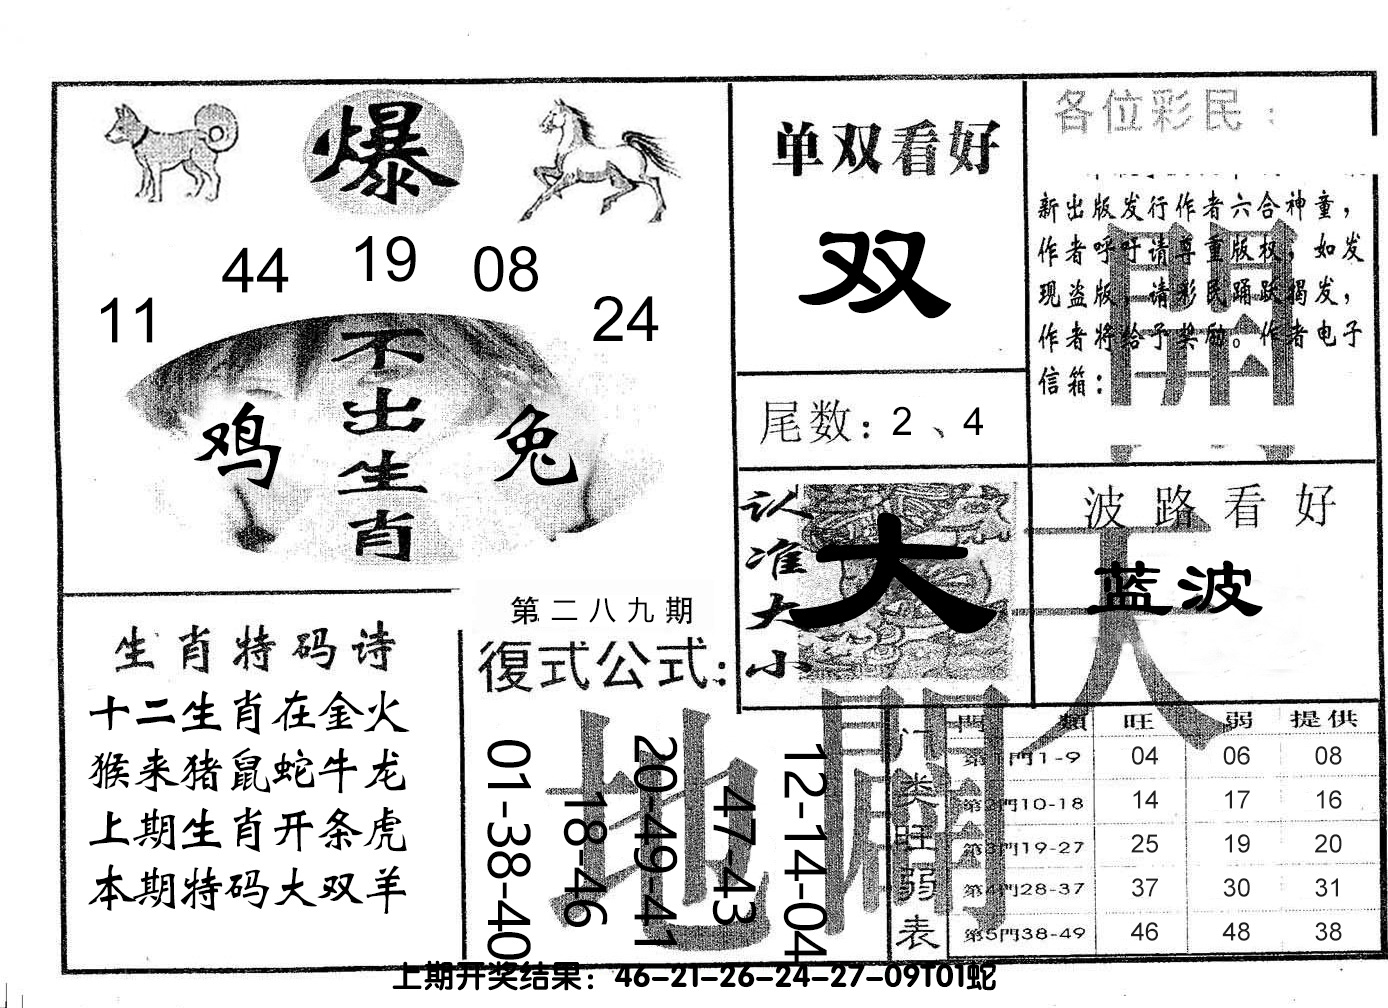 爆
11
44
19
08
24
不出生肖
鸡
兔
单双看好
双
尾数：2、4
各位彩民：
新出版发行作者六合神童，
作者呼吁请尊重版权，如发
现盗版，请彩民踊跃揭发，
作者将给予奖励。作者电子
信箱：
認准大小
大
波路看好
蓝波
天
開
生肖特码诗
十二生肖在金火
猴来猪鼠蛇牛龙
上期生肖开条虎
本期特码大双羊
第二八九期
復式公式：
01-38-40
18-46
20-49-41
47-43
12-14-04
地
門类旺弱表
門類 旺 弱 提供
第1門1-9 04 06 08
第2門10-18 14 17 16
第3門19-27 25 19 20
第4門28-37 37 30 31
第5門38-49 46 48 38
上期开奖结果：46-21-26-24-27-09T01蛇